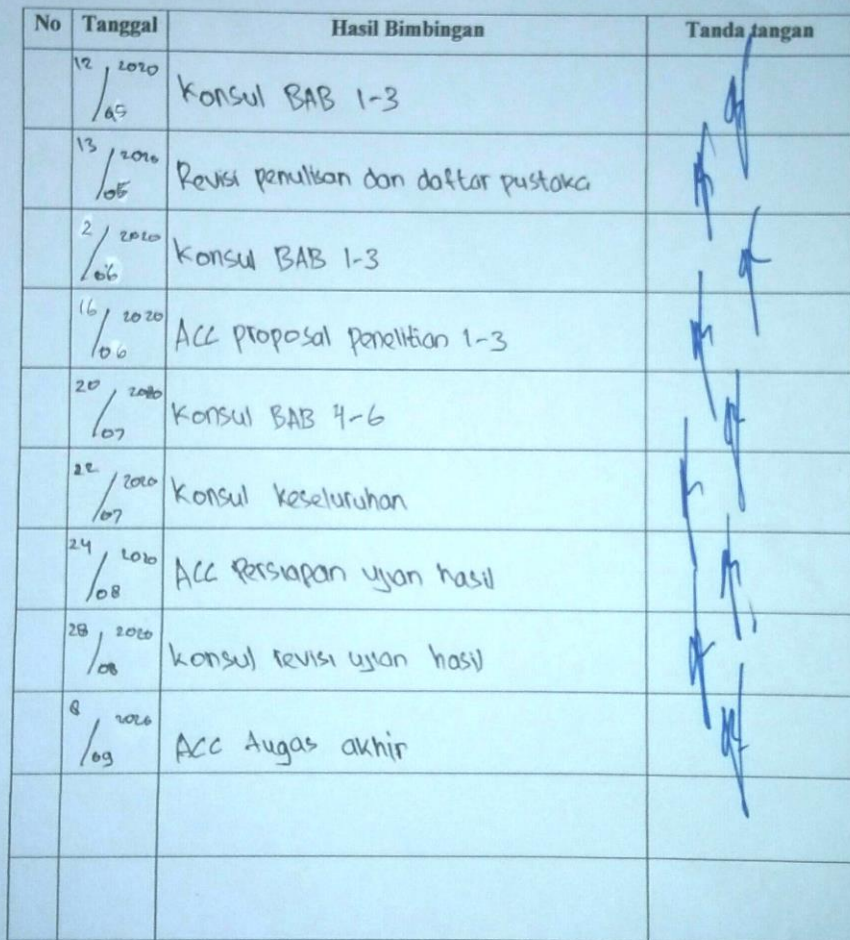 No Tanggal Hasil Bimbingan Tanda tangan
12/05 2020 Konsul BAB 1-3
13/05 2020 Revisi penulisan dan daftar pustaka
2/06 2020 Konsul BAB 1-3
16/06 2020 ACC proposal penelitian 1-3
20/07 2020 Konsul BAB 4-6
22/07 2020 Konsul keseluruhan
24/08 2020 ACC Persiapan ujian hasil
28/08 2020 konsul revisi ujian hasil
8/09 2020 ACC Augas akhir